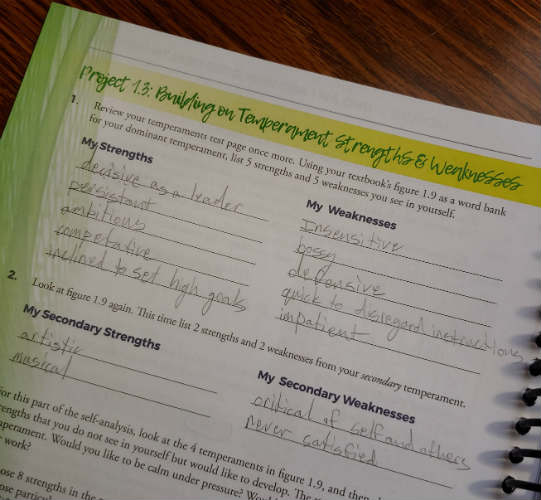 Project 1.3: Building on Temperament Strengths & Weaknesses
1. Review your temperaments test page once more. Using your textbook's figure 1.9 as a word bank
for your dominant temperament, list 5 strengths and 5 weaknesses you see in yourself.
My Strengths
decisive as a leader
persistant
ambitious
competative
inclined to set high goals
My Weaknesses
Insensitive
bossy
defensive
quick to disregard instructions
impatient
2. Look at figure 1.9 again. This time list 2 strengths and 2 weaknesses from your secondary temperament.
My Secondary Strengths
artistic
musical
My Secondary Weaknesses
critical of self and others
never satisfied
For this part of the self-analysis, look at the 4 temperaments in figure 1.9, and then
strengths that you do not see in yourself but would like to develop. The
temperament. Would you like to be calm under pressure? Would
work?
8 strengths in the